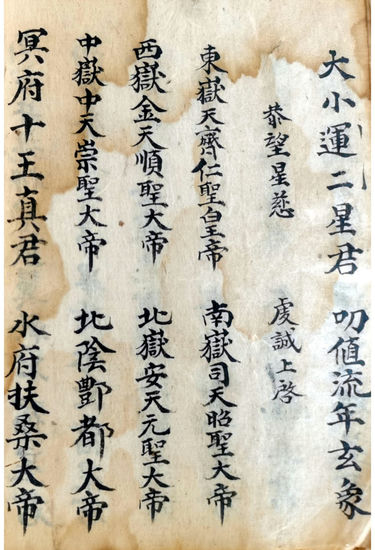 大小運二星君　叨値流年玄象
恭望星慈　虔誠上啓
東嶽天齊仁聖白王帝　南嶽司天昭聖大帝
西嶽金天順聖大帝　北嶽安天元聖大帝
中嶽中天崇聖大帝　北陰酆都大帝
冥府十王真君　水府扶桑大帝